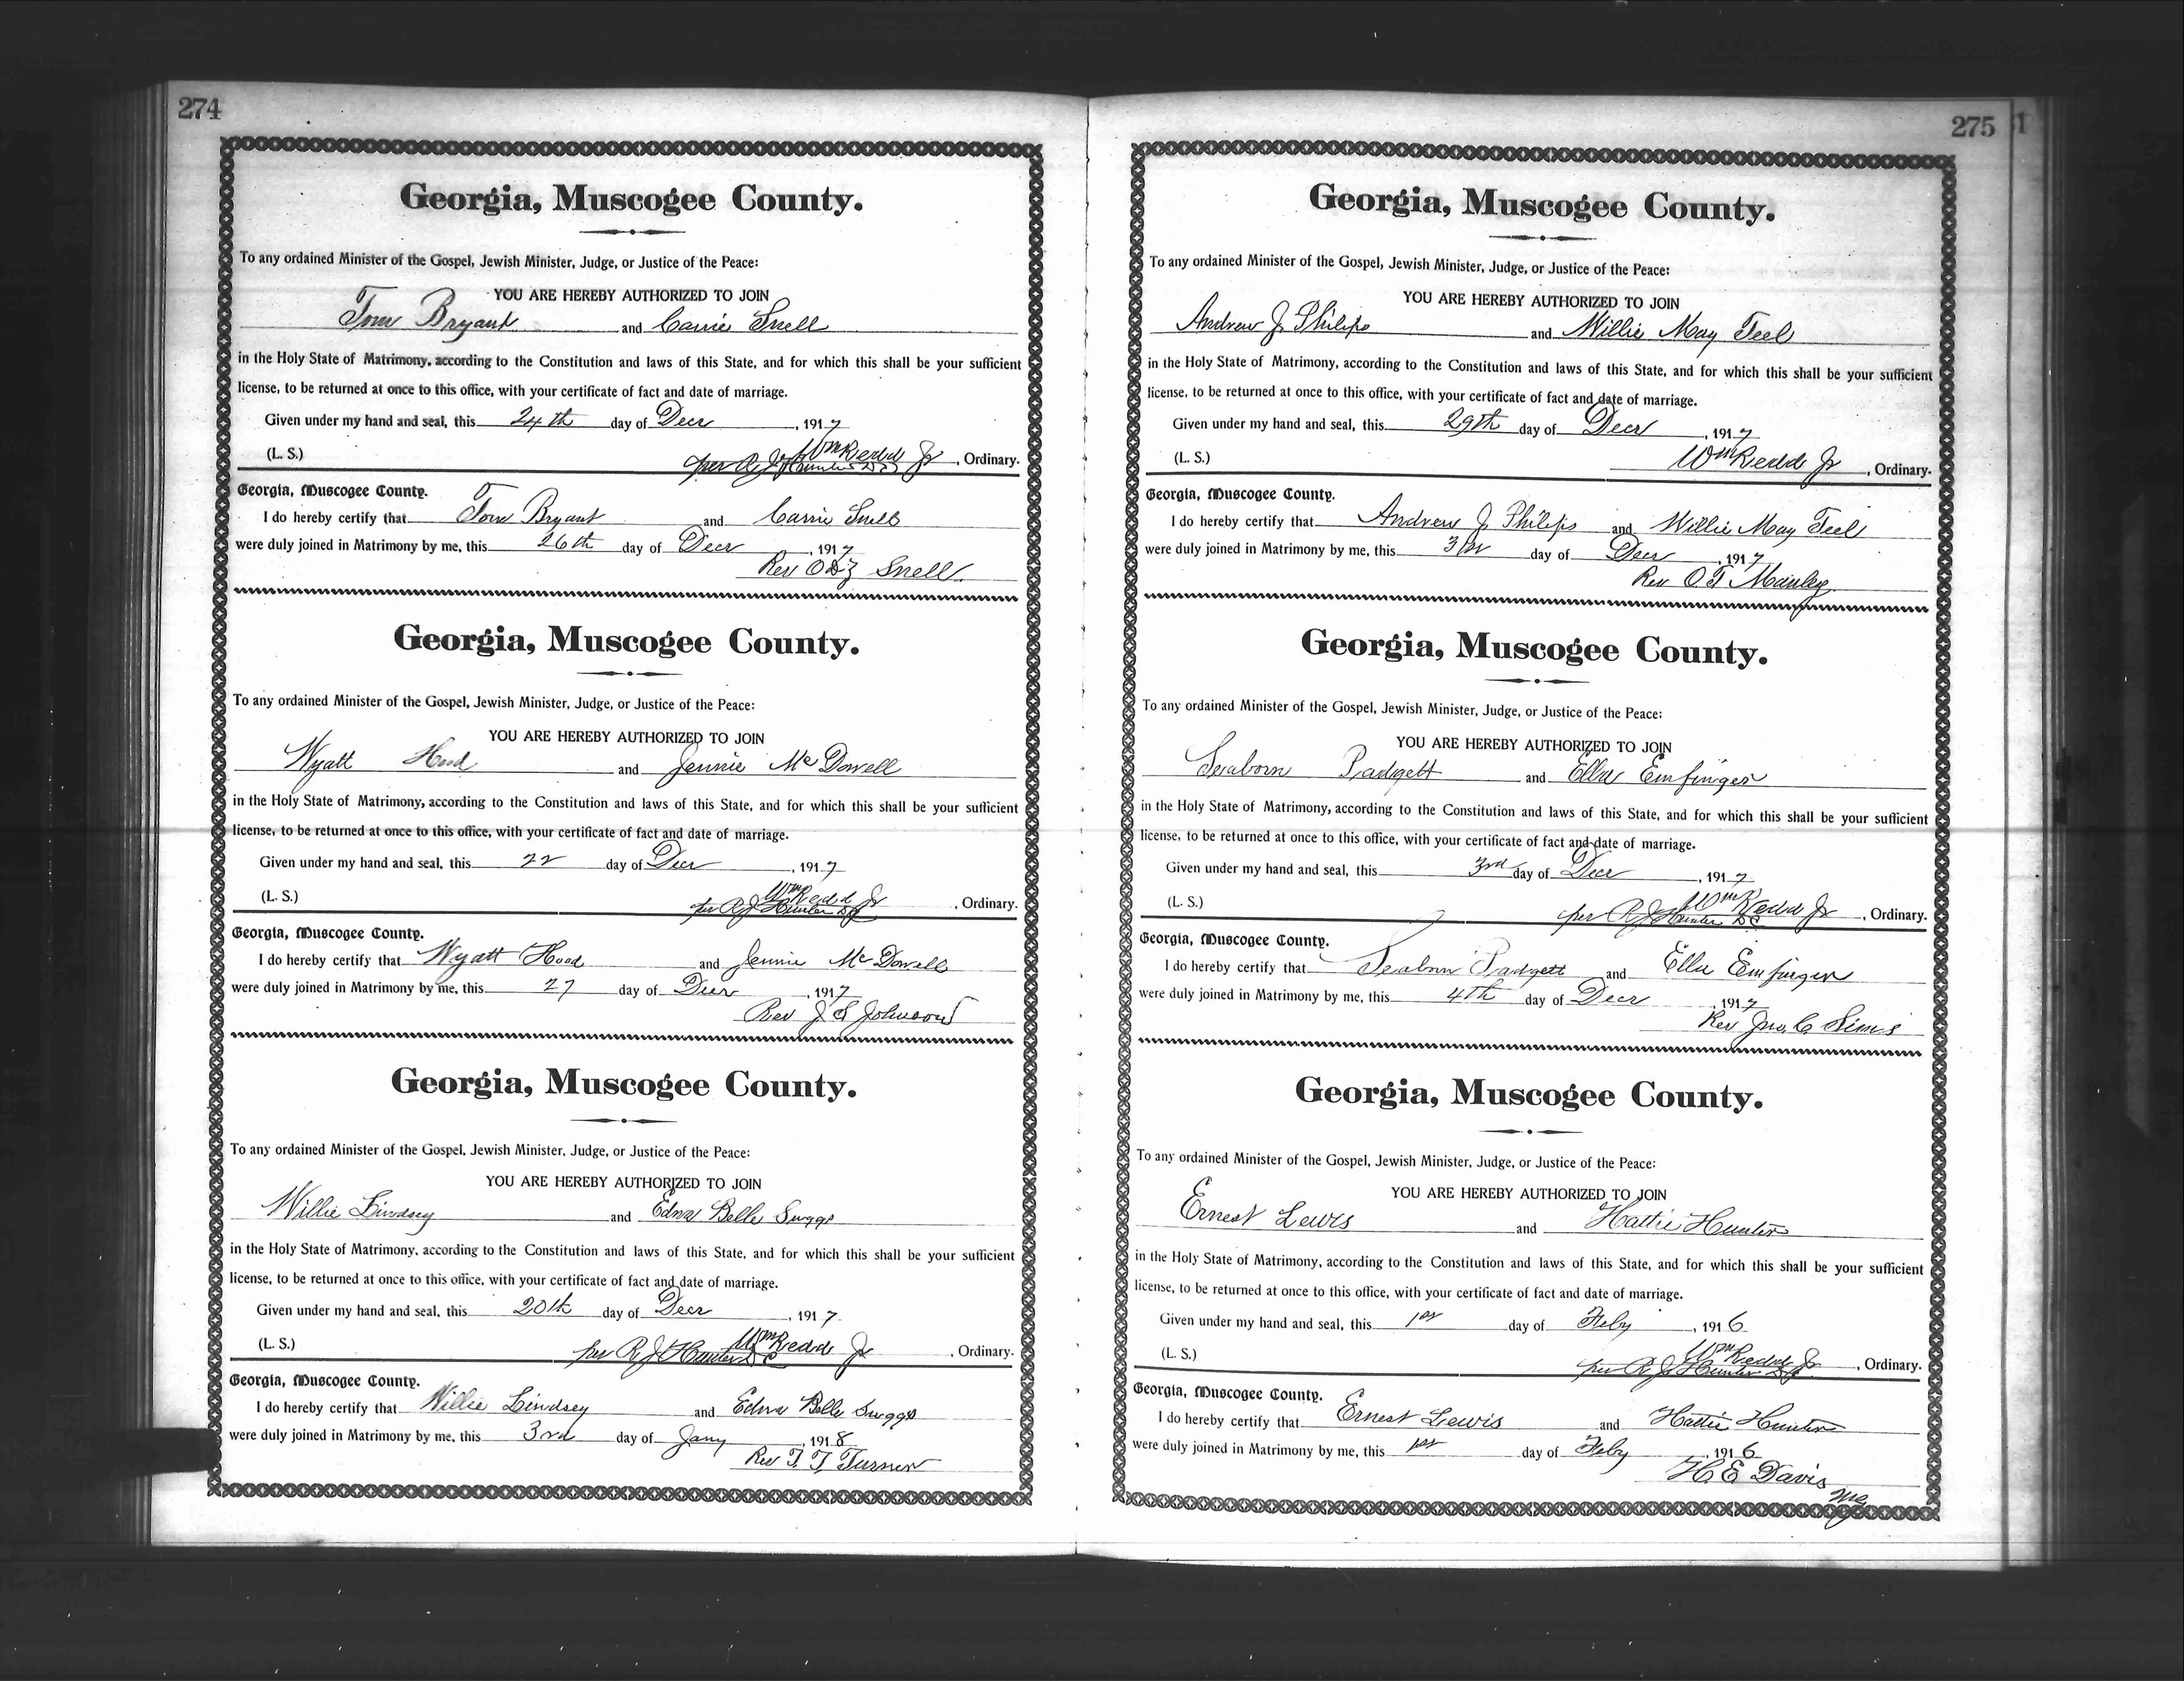 274
Georgia, Muscogee County.
To any ordained Minister of the Gospel, Jewish Minister, Judge, or Justice of the Peace:
YOU ARE HEREBY AUTHORIZED TO JOIN
Tom Bryant and Carrie Snell
in the Holy State of Matrimony, according to the Constitution and laws of this State, and for which this shall be your sufficient
license, to be returned at once to this office, with your certificate of fact and date of marriage.
Given under my hand and seal, this 24th day of Decr, 1917
Wm Redd Jr
(L. S.) per R J Hunter , Ordinary.
Georgia, Muscogee County.
I do hereby certify that Tom Bryant and Carrie Snell
were duly joined in Matrimony by me, this 26th day of Decr, 1917
Rev Snell
Georgia, Muscogee County.
To any ordained Minister of the Gospel, Jewish Minister, Judge, or Justice of the Peace:
YOU ARE HEREBY AUTHORIZED TO JOIN
Wyatt Hood and Jennie McDowell
in the Holy State of Matrimony, according to the Constitution and laws of this State, and for which this shall be your sufficient
license, to be returned at once to this office, with your certificate of fact and date of marriage.
Given under my hand and seal, this 22 day of Decr, 1917
Wm Redd Jr
(L. S.) per R J Hunter , Ordinary.
Georgia, Muscogee County.
I do hereby certify that Wyatt Hood and Jennie McDowell
were duly joined in Matrimony by me, this 27 day of Decr, 1917
Rev J S Johnson
Georgia, Muscogee County.
To any ordained Minister of the Gospel, Jewish Minister, Judge, or Justice of the Peace:
YOU ARE HEREBY AUTHORIZED TO JOIN
Willie Lindsey and Edna Belle Suggs
in the Holy State of Matrimony, according to the Constitution and laws of this State, and for which this shall be your sufficient
license, to be returned at once to this office, with your certificate of fact and date of marriage.
Given under my hand and seal, this 20th day of Decr, 1917
Wm Redd Jr
(L. S.) per R J Hunter DC , Ordinary.
Georgia, Muscogee County.
I do hereby certify that Willie Lindsey and Edna Belle Suggs
were duly joined in Matrimony by me, this 3rd day of Jany, 1918
Rev T. T. Turner
275
Georgia, Muscogee County.
To any ordained Minister of the Gospel, Jewish Minister, Judge, or Justice of the Peace:
YOU ARE HEREBY AUTHORIZED TO JOIN
Andrew J Philips and Willie May Teel
in the Holy State of Matrimony, according to the Constitution and laws of this State, and for which this shall be your sufficient
license, to be returned at once to this office, with your certificate of fact and date of marriage.
Given under my hand and seal, this 29th day of Decr, 1917
(L. S.) Wm Redd Jr, Ordinary.
Georgia, Muscogee County.
I do hereby certify that Andrew J Philips and Willie May Teel
were duly joined in Matrimony by me, this day of Decr, 1917
Rev O T Manley
Georgia, Muscogee County.
To any ordained Minister of the Gospel, Jewish Minister, Judge, or Justice of the Peace:
YOU ARE HEREBY AUTHORIZED TO JOIN
Seaborn Padgett and Ella Emfinger
in the Holy State of Matrimony, according to the Constitution and laws of this State, and for which this shall be your sufficient
license, to be returned at once to this office, with your certificate of fact and date of marriage.
Given under my hand and seal, this 3rd day of Decr, 1917
Wm Redd Jr
(L. S.) per R J Hunter DC , Ordinary.
Georgia, Muscogee County.
I do hereby certify that Seaborn Padgett and Ella Emfinger
were duly joined in Matrimony by me, this 4th day of Decr, 1917
Rev Jno. C Sims
Georgia, Muscogee County.
To any ordained Minister of the Gospel, Jewish Minister, Judge, or Justice of the Peace:
YOU ARE HEREBY AUTHORIZED TO JOIN
Ernest Lewis and Hattie Hunter
in the Holy State of Matrimony, according to the Constitution and laws of this State, and for which this shall be your sufficient
license, to be returned at once to this office, with your certificate of fact and date of marriage.
Given under my hand and seal, this 1st day of Feby, 1916
Wm Redd Jr
(L. S.) per R J Hunter , Ordinary.
Georgia, Muscogee County.
I do hereby certify that Ernest Lewis and Hattie Hunter
were duly joined in Matrimony by me, this 1st day of Feby, 1916
H E Davis